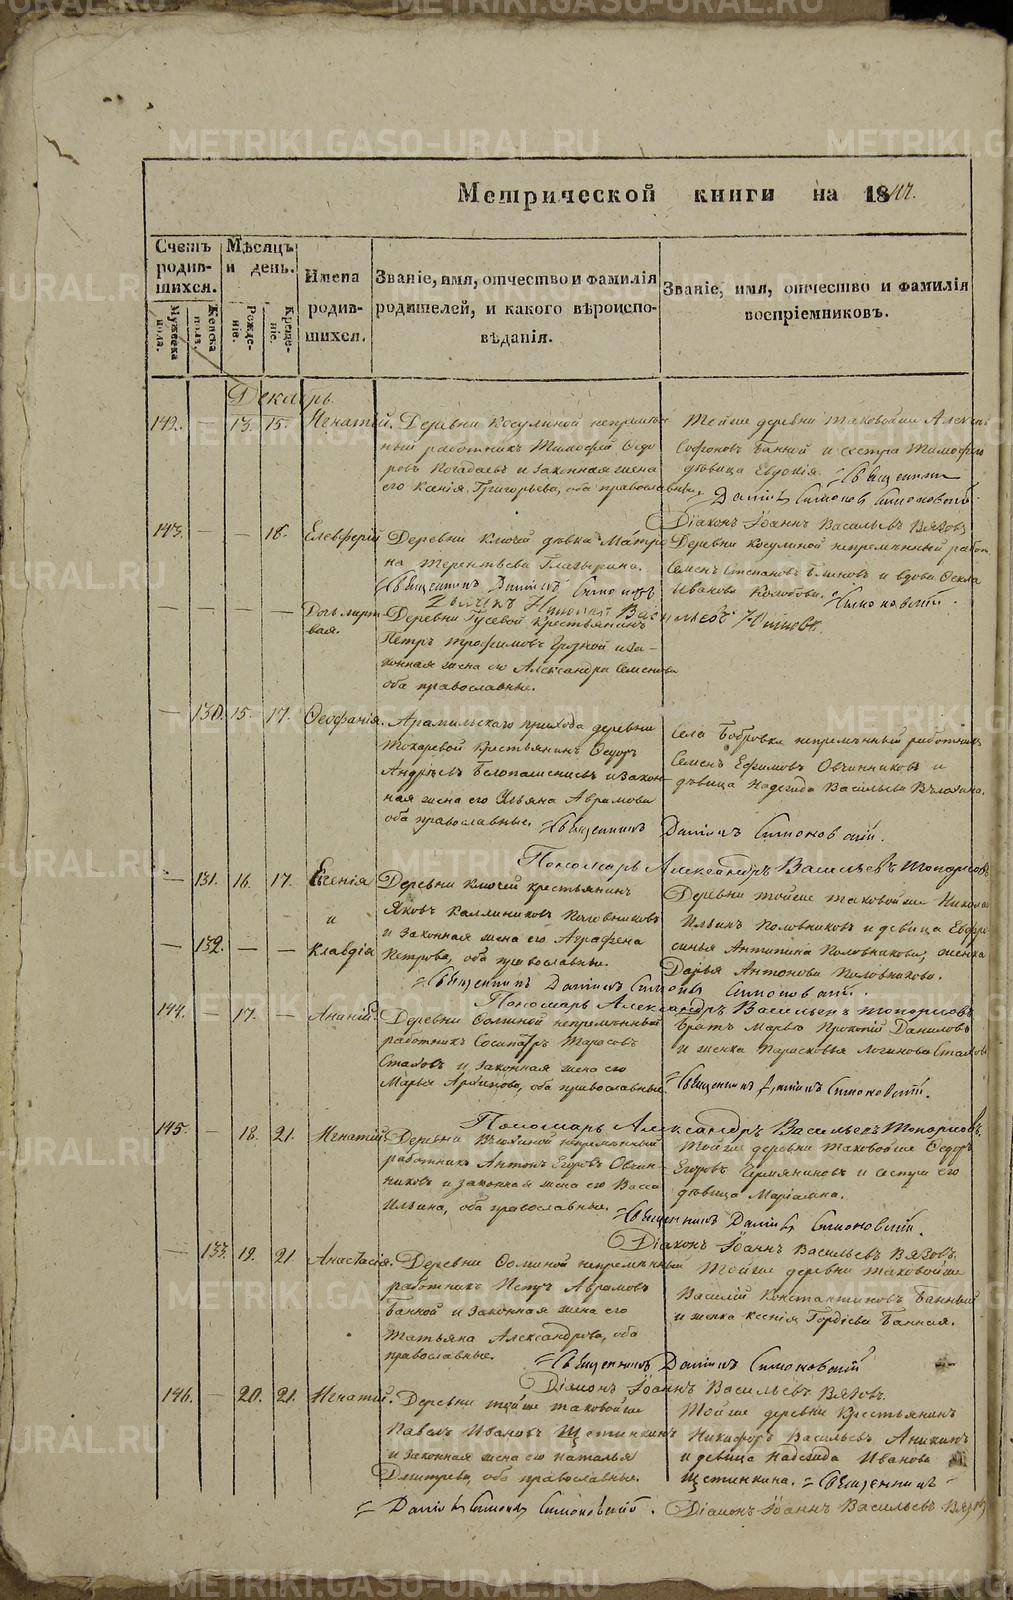 Метрической книги на 1847.
Счетъ родив-шихся.
Мужеска пола.
Женска пола.
Мѣсяцъ и день.
Рожде-ніе.
Креще-ніе.
Имена родив-шихся.
Званіе, имя, отчество и фамилія родителей, и какого вѣроиспо-вѣданія.
Званіе, имя, отчество и фамилія воспріемниковъ.
Декабрь
142. — 13. 15. Игнатій.
Деревни Косулиной непремѣн-
ный работникъ Тимофей Ѳедо-
ровъ Погадаевъ и законная жена
его Ксенія Григорьева, оба православные.
Тойже деревни таковойже Алексѣй
Софоновъ Банной и сестра Тимофею
дѣвица Евдокія. Священникъ
Даніилъ Симоновъ Симоновскій
Діаконъ Іоаннъ Васильевъ Вязовъ
143. — — 18. Елевферій
Деревни Ключей дѣвка Матре
на Терентьева Глазырина.
Священникъ Даніилъ Симоновъ
Деревни Косулиной непремѣнный работ.
Семенъ Степановъ Блиновъ и вдова Ѳекла
Иванова Коробова. Симоновскій.
Дьячекъ Николай Васильевъ
— — — — Дочь мерт-
вая.
Деревни Гусевой крестьянинъ
Петръ Трофимовъ и за-
конная жена его Александра Семенова
оба православные.
— 130. 15. 17. Ѳеофанія.
Арамильскаго прихода деревни
Токаревой крестьянинъ Ѳедоръ
Андреевъ Белопашенцевъ и закон-
ная жена его Ульяна Аврамова
оба православные. Священникъ Даніилъ Симоновскій.
Села Бобровки непремѣнный работникъ
Семенъ Ефимовъ Овчинниковъ и
дѣвица Надежда Васильева
Пономарь Александръ Васильевъ Топорковъ
— 131. 16. 17. Евгенія
и
— 132. — — Клавдія
Деревни Ключей крестьянинъ
Яковъ Каллиниковъ Половниковъ
и законная жена его Аграфена
Петрова, оба православные.
Деревни тойже таковойже Николай
Ильинъ Половниковъ и дѣвица Евфро
синья Антипина Половникова; женка
Дарья Антонова Половникова.
Священникъ Даніилъ Симоновъ Симоновскій.
Пономарь Александръ Васильевъ Топорковъ
144. — 17. — Ананій.
Деревни Фоминой непремѣнный
работникъ Сосипатръ Тарасовъ
Стаховъ и законная жена его
Марья Архипова, оба православные.
Братъ Марьѣ Прокопій Даниловъ
и женка Парасковья Логинова Стахова
Священникъ Даніилъ Симоновскій.
Пономарь Александръ Васильевъ Топорковъ.
145. — 18. 21. Игнатій.
Деревни непремѣнный
работникъ Антонъ Егоровъ Овчин-
никовъ и законная жена его Васса
Ильина, оба православные.
Тойже деревни таковойже Ѳедоръ
Егоровъ и сестра его
дѣвица Маріамна.
Священникъ Даніилъ Симоновскій.
Діаконъ Іоаннъ Васильевъ Вязовъ.
— 133. 19. 21. Анастасія.
Деревни Фоминой непремѣнный
работникъ Петръ Аврамовъ
Банной и законная жена его
Татьяна Александрова, оба
православные.
Тойже деревни таковойже
Василій Константиновъ Банный
и женка Ксенія Гордіева Банная.
Священникъ Даніилъ Симоновскій
Діаконъ Іоаннъ Васильевъ Вязовъ.
146. — 20. 21. Игнатій.
Деревни тойже таковойже
Павелъ Ивановъ Щетинкинъ
и законная жена его Наталья
Дмитрева, оба православные.
Тойже деревни крестьянинъ
Никифоръ Васильевъ Аникинъ
и дѣвица Надежда Иванова
Щетинкина. Священникъ
Даніилъ Симоновъ Симоновскій. Діаконъ Іоаннъ Васильевъ Вязовъ
METRIKI.GASO-URAL.RU